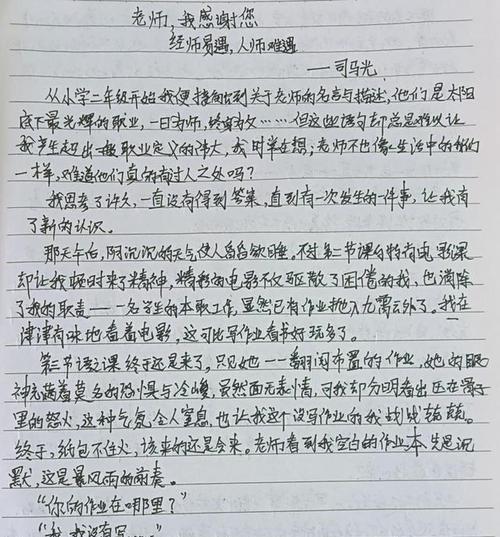 老师,我感谢您
经师易遇,人师难遇
——司马光
从小学二年级开始我便接触到关于老师的名言与描述,他们是太阳
底下最光辉的职业,一日为师,终身为父……但这些语句却总是难以让
我产生超出一般职业定义的伟大,我时常在想;老师不也像生活中的我们
一样,难道他们真的有过人之处吗?
我思考了许久,一直没有得到答案,直到有一次发生的一件事,让我有
了新的认识。
那天午后,阴沉沉的天气使人昏昏欲睡。不过第二节课的特有电影课
却让我顿时来了精神,精彩的电影不仅驱散了困倦的我,也消除
了我的职责——一名学生的本职工作,显然已有作业抛入九霄云外了。我在
津津有味地看着电影,这可比写作业看书好玩多了。
第三节语文课终于还是来了。只见她一一翻阅布置的作业,她的眼
神充满着莫名的恐惧与冷峻,虽然面无表情,可我却分明看出压在骨子
里的怒火,这种气氛令人窒息,也让我这个没写作业的我战战兢兢。
终于,纸包不住火,该来的还是会来。老师看到我空白的作业本先是沉
默,这是暴风雨的前奏。
“你的作业在哪里?”
“我,我没有写……”